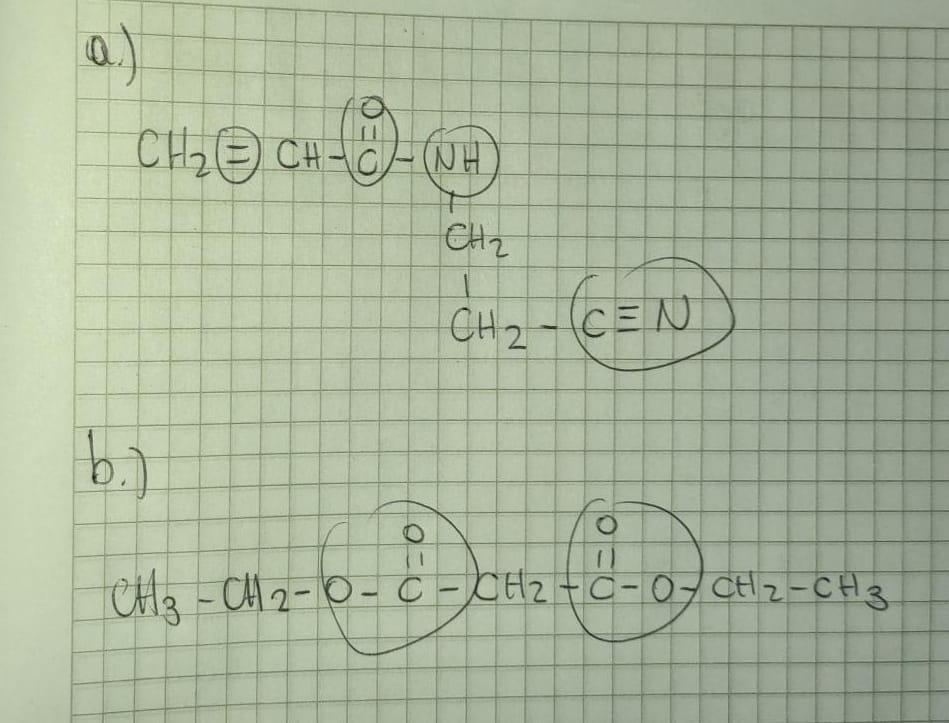 a.)
O
||
CH2=CH-C-NH
|
CH2
|
CH2-C≡N
b.)
O O
|| ||
CH3-CH2-O-C-CH2-C-O-CH2-CH3